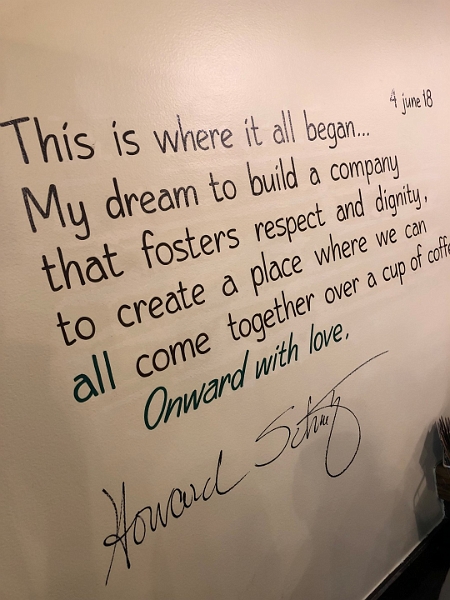 4 june 18
This is where it all began...
My dream to build a company
that fosters respect and dignity,
to create a place where we can
all come together over a cup of coffe
Onward with love,
Howard Schultz